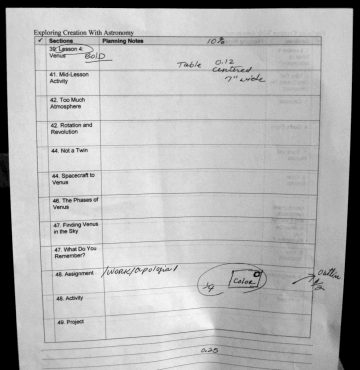 Exploring Creation With Astronomy
✓ Sections Planning Notes 10%
39. Lesson 4:
Venus BOLD
Table 0.12
centered
7" wide
41. Mid-Lesson
Activity
42. Too Much
Atmosphere
42. Rotation and
Revolution
44. Not a Twin
44. Spacecraft to
Venus
46. The Phases of
Venus
47. Finding Venus
in the Sky
47. What Do You
Remember?
48. Assignment /WORK/apologia/
Color
outline
48. Activity
49. Project
0.25